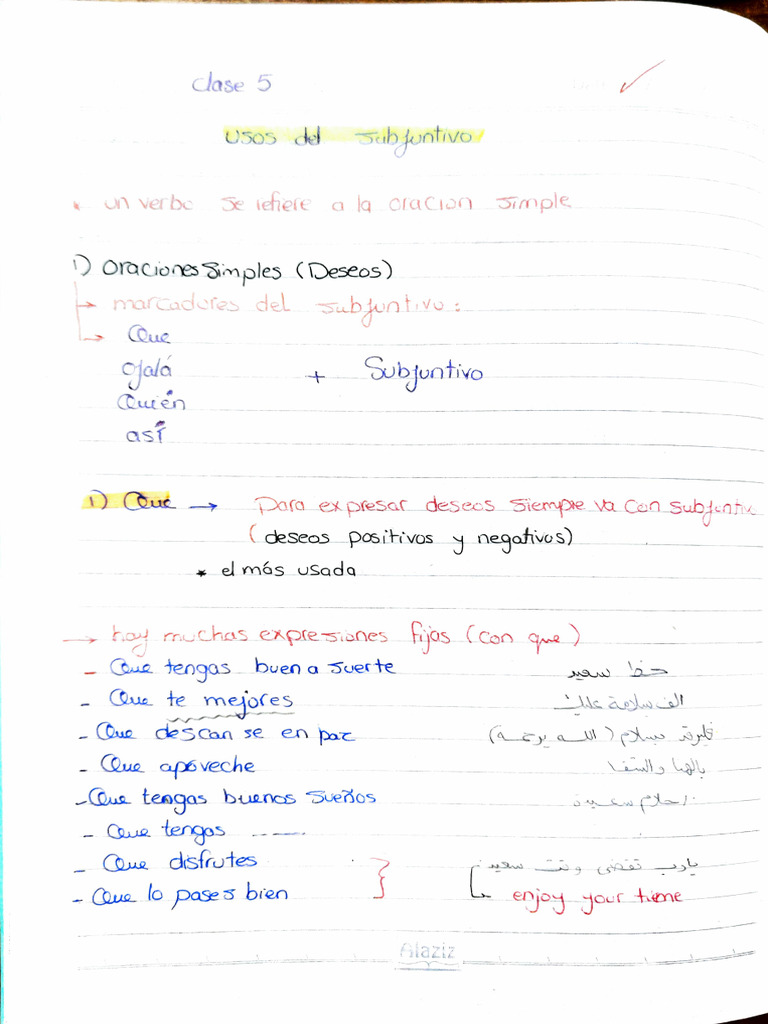 Clase 5
usos del subjuntivo
* un verbo se refiere a la oracion simple
1) Oraciones Simples (Deseos)
→ marcadores del subjuntivo:
→ Que
Ojalá
Quién
así
+ Subjuntivo
1) Que → Para expresar deseos siempre va con subjuntiv
(deseos positivos y negativos)
* el más usada
→ hay muchas expresiones fijas (con que)
- Que tengas buena suerte حظ سعيد
- Que te mejores الف سلامة عليك
- Que descanse en paz فليرقد بسلام (الله يرحمه)
- Que apoveche بالهنا والشفا
- Que tengas buenos sueños احلام سعيدة
- Que tengas -----
- Que disfrutes يارب تقضي وقت سعيد
- Que lo pases bien enjoy your time
Alaziz